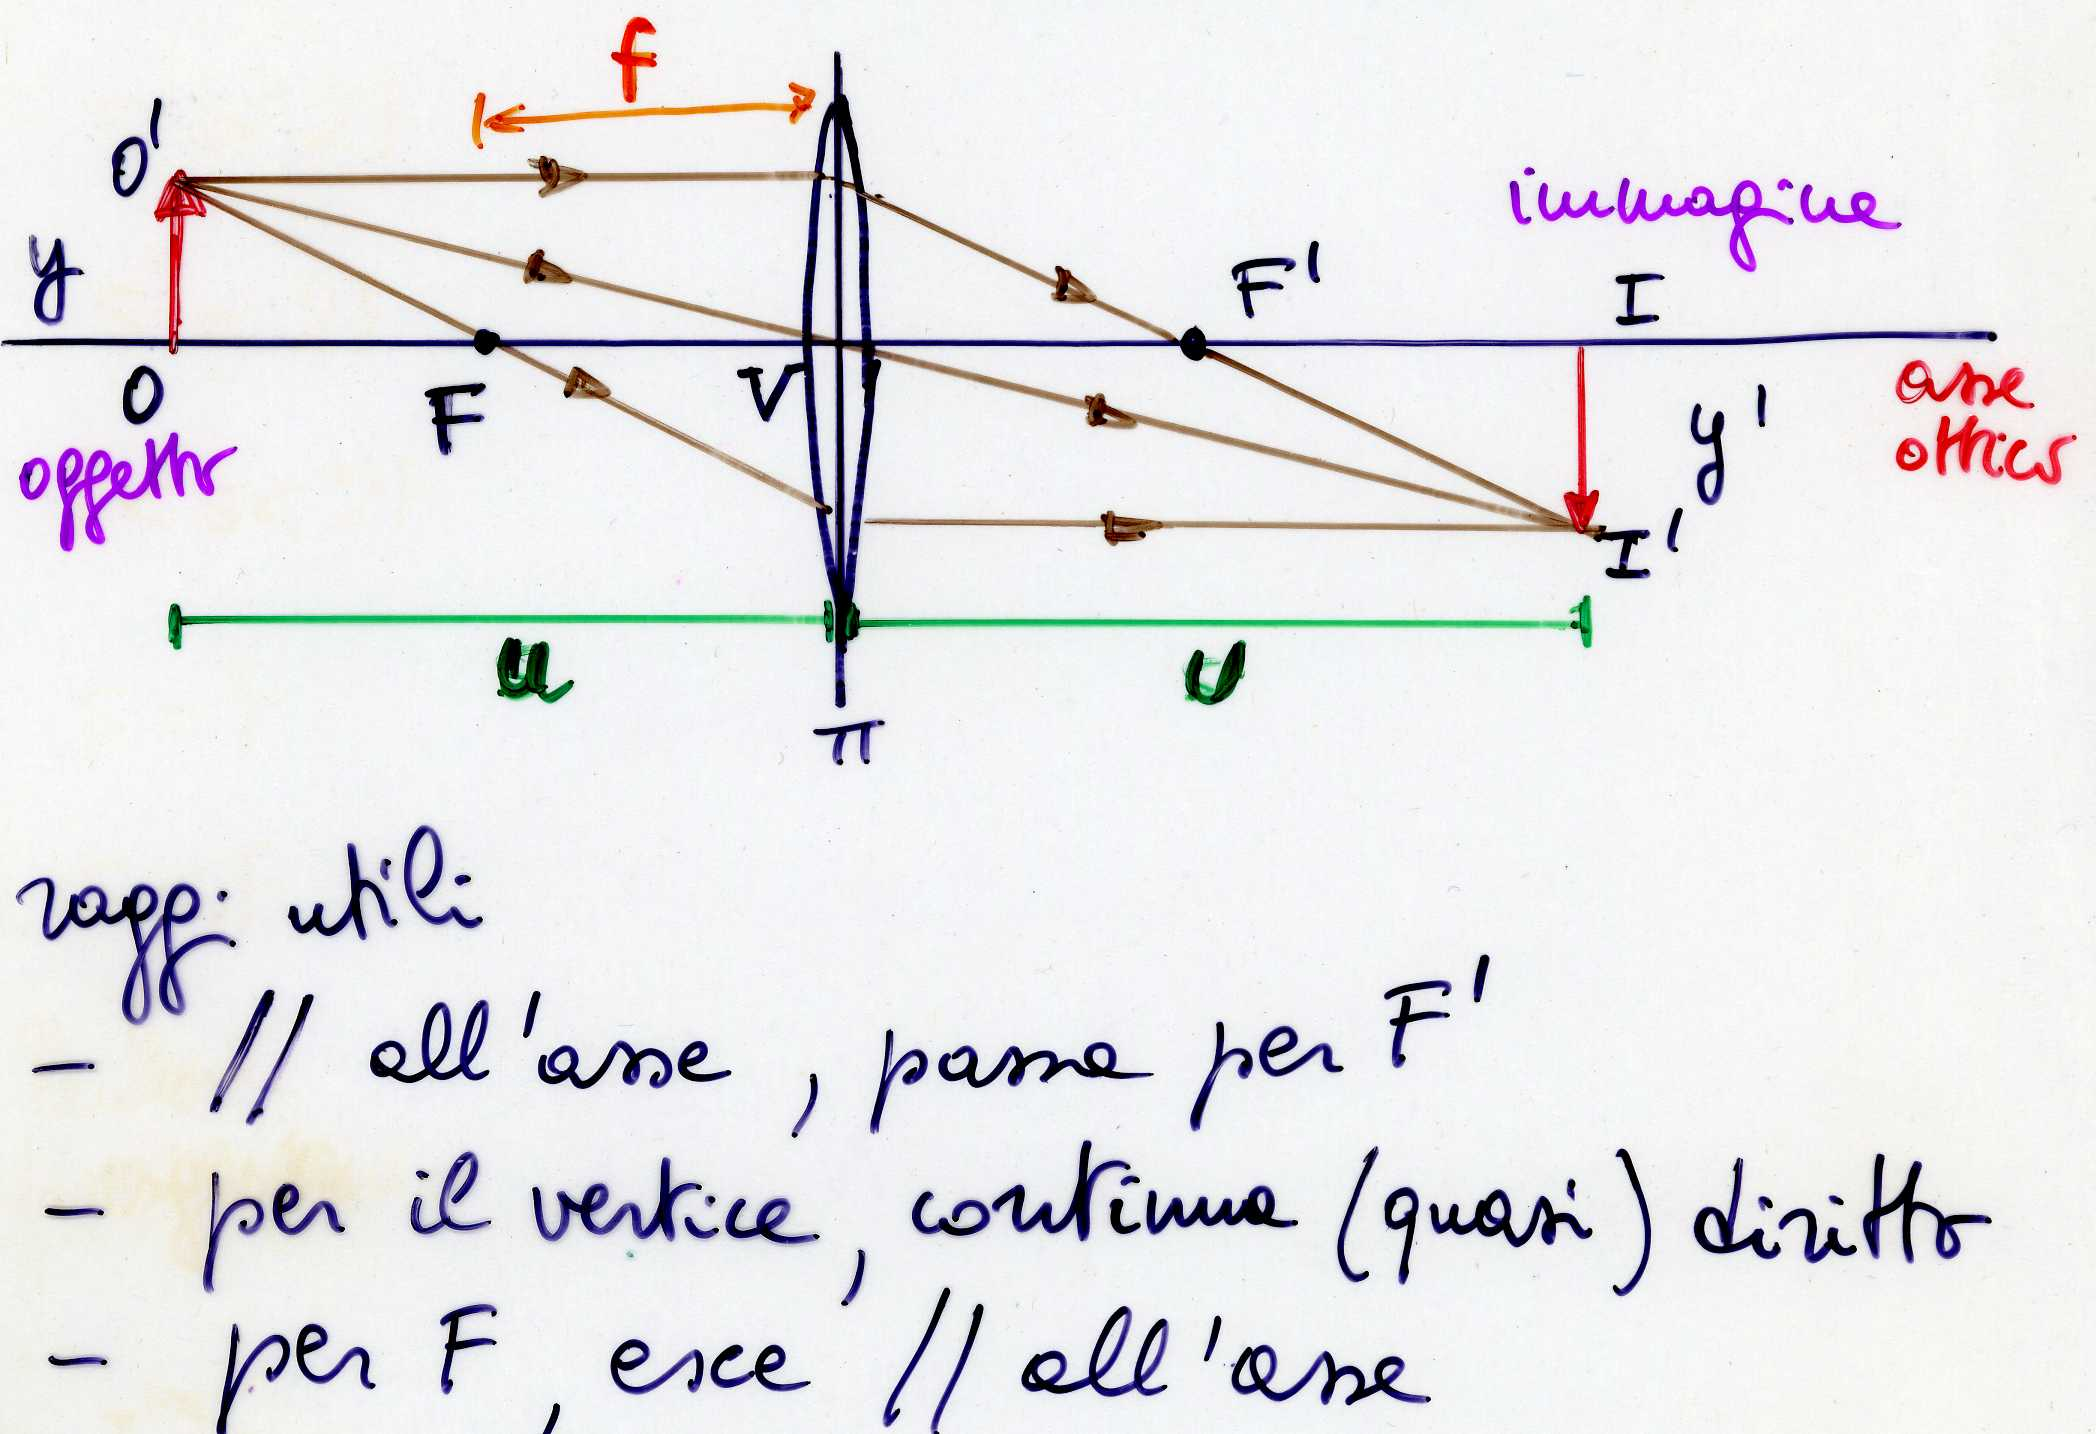 f
O'
immagine
y
F'
I
O
F
V
y'
asse
ottico
oggetto
I'
u
v
π
raggi utili
- // all'asse, passa per F'
- per il vertice, continua (quasi) diritto
- per F, esce // all'asse